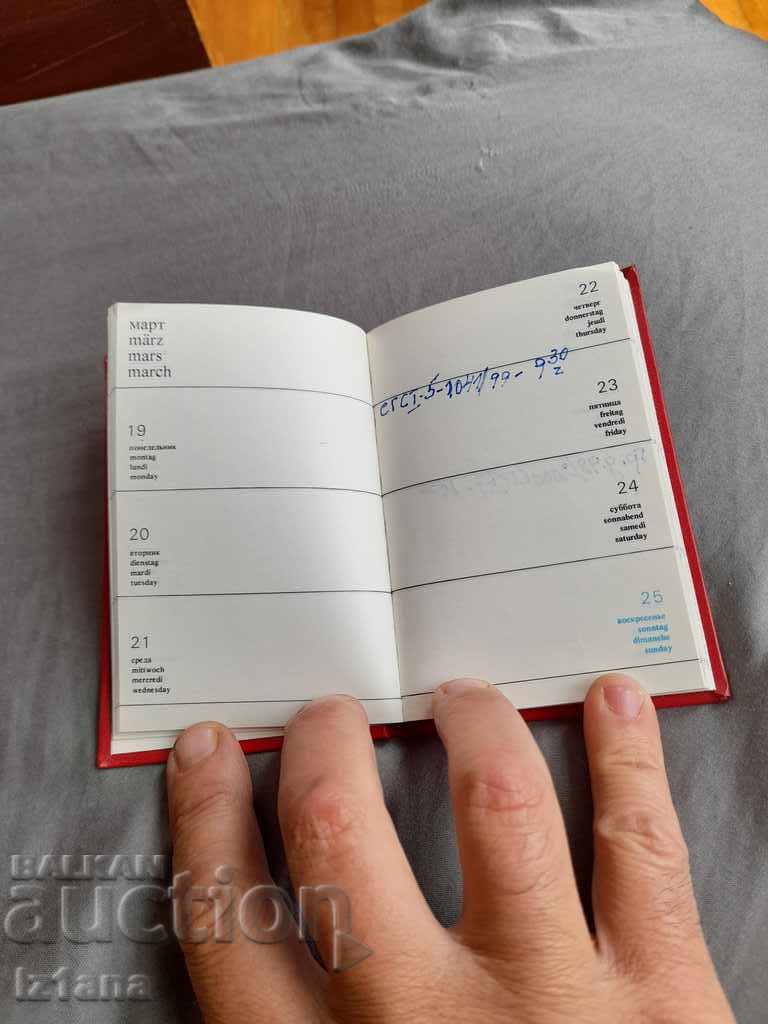 март
märz
mars
march
19
понедельник
montag
lundi
monday
20
вторник
dienstag
mardi
tuesday
21
среда
mittwoch
mercredi
wednesday
22
четверг
donnerstag
jeudi
thursday
23
пятница
freitag
vendredi
friday
24
суббота
sonnabend
samedi
saturday
25
воскресенье
sonntag
dimanche
sunday
BALKAN
auction
iz1ana